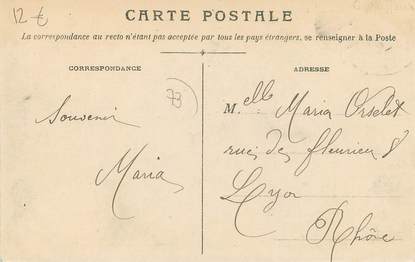 12 €
CARTE POSTALE
La correspondance au recto n'étant pas acceptée par tous les pays étrangers, se renseigner à la Poste
CORRESPONDANCE
73
Souvenir
Maria
ADRESSE
M.elle Maria Orselet
rue des fleurieu 8
Lyon
Rhône